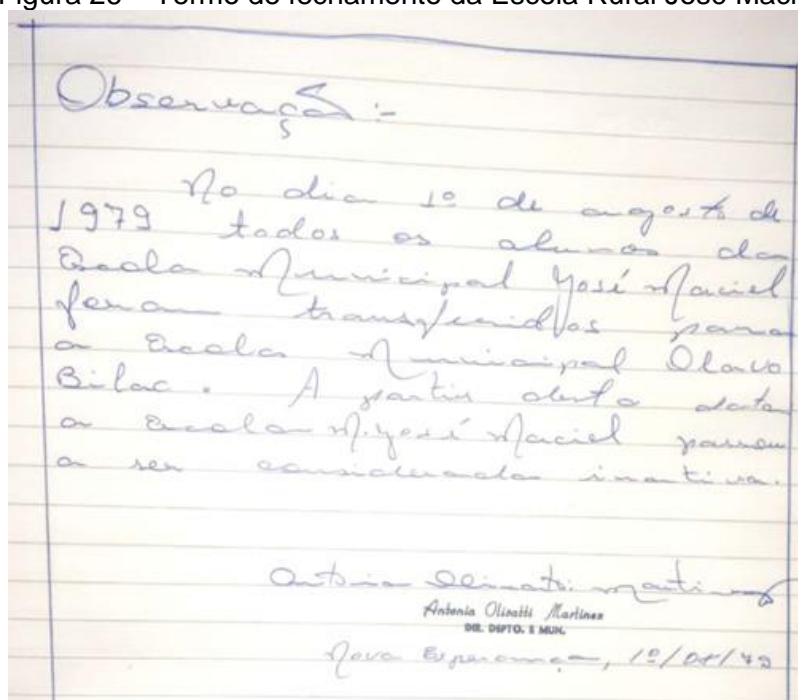 Figura 26 – Termo de fechamento da Escola Rural José Maci
Observação :-
No dia 1º de agosto de
1979 todos os alunos da
Escola Municipal José Maciel
foram transferidos para
a Escola Municipal Olavo
Bilac. A partir desta data
a Escola M. José Maciel passou
a ser considerada inativa.
Antonia Olivatti Martinez
Antonia Olivatti Martinez
DIR. DEPTO. E MUN.
Nova Esperança, 1º/08/79